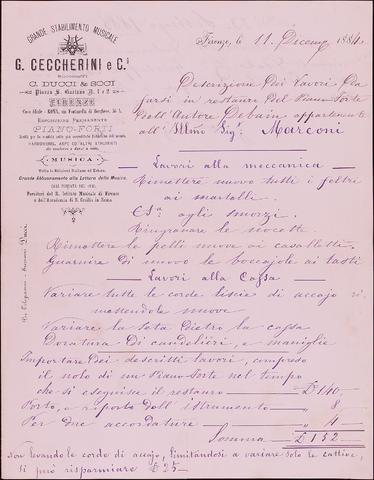 GRANDE STABILIMENTO MUSICALE
G. CECCHERINI e C.i
Successori
C. DUCCI & SOCI
Piazza S. Gaetano N. 1 e 2
FIRENZE
Casa filiale - ROMA,
ESPOSIZIONE PERMANENTE
PIANO-FORTI
HARMONIUMS, ARPE ED ALTRI STRUMENTI
da vendere e dare a nolo.
MUSICA
Vendita Edizioni Italiane ed Estere.
Grande Abbonamento alla Lettura della Musica.
CASA FONDATA NEL 1830.
Fornitori del R. Istituto Musicale di Firenze
e dell'Accademia di S. Cecilia in Roma.
Per Telegrammi - Ceccherini Ducci
Firenze, li 11. Decemb 1884
Descrizione Dei Lavori Da
farsi in restauro Del Piano Forte
Dell'Autore Debain appartenente
all' Illmo Sig: Marconi
Lavori alla meccanica
Rimettere nuovo tutti i feltri
ai martelli.
C.Sa agli smorzi.
Rimpranare le nocette
Rimettere le pelli nuove ai cavalletti.
Guarnire di nuovo le boccajole ai tasti
Lavori alla Cassa
Variare tutte le corde liscie di accajo ri
mettendole nuove
Variare la Seta Dietro la cassa
Doratura Di candelieri, e maniglie
Importare Dei descritti lavori, compreso
il nolo di un Piano Forte nel tempo
che si eseguisce il restauro — £ 140
Porto, e riporto dell'Istrumento — " 8
Per due accordature — " 4
Somma — £ 152
Non levando le corde di accajo, limitandosi a variare solo le cattive,
si può risparmiare £ 25 —